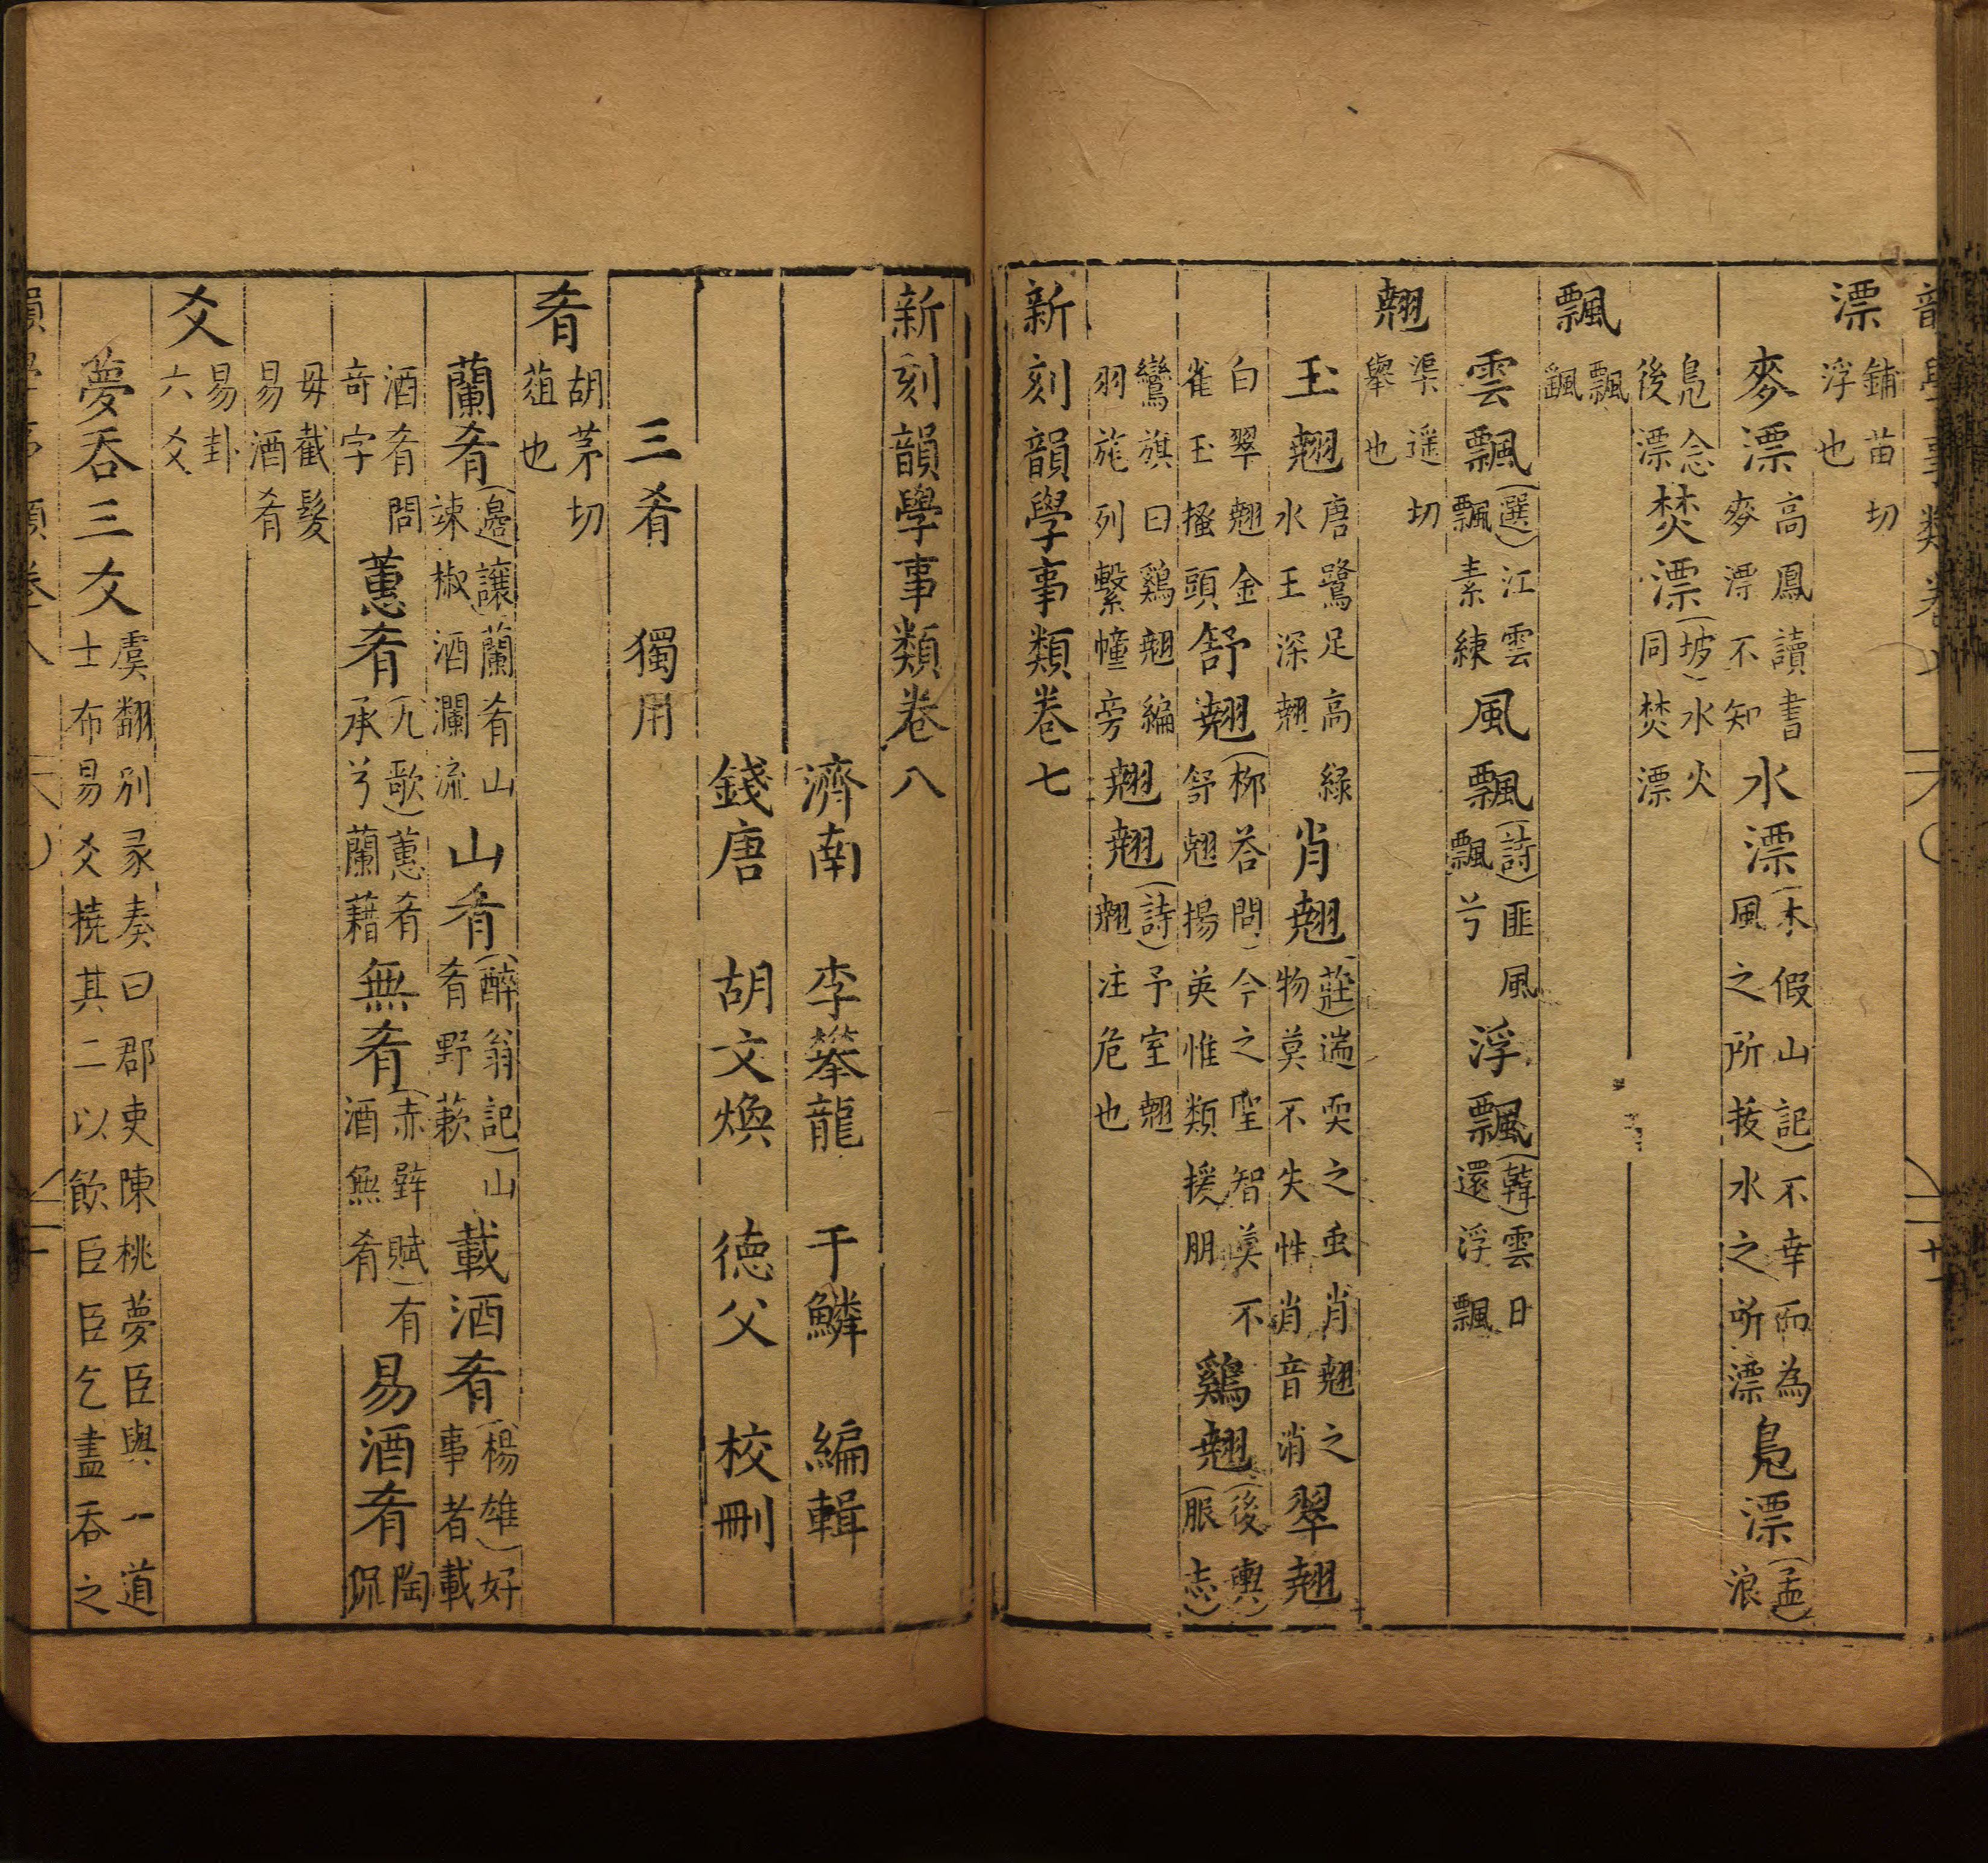 漂鋪苗切浮也
麥漂高鳳讀書麥漂不知水漂(木假山記)不幸而為風之所抜水之所漂鳬漂(孟)浪
鳬念後漂焚漂(坡)水火同焚漂
飄飄飄
雲飄(選)江雲飄素練風飄(詩)匪風飄兮浮飄(韓)雲日還浮飄
翹渠遥切舉也
玉翹唐鷺足高緑水玉深翹肖翹(莊)惴耎之虫肖翹之物莫不失性肖音消翠翹
白翠翹金雀玉搔頭舒翹(栁荅問)今之聖智羙不舒翹揚英惟類援朋鷄翹(後輿服志)
鸞旗曰鷄翹編羽旄列繫幢旁翹翹(詩)予室翹翹注危也
新刻韻學事類卷七
新刻韻學事類卷八
濟南 李攀龍 于鱗 編輯
錢唐 胡文煥 德父 校刪
三肴 獨用
肴胡茅切葅也
蘭肴(邉讓)蘭肴山竦椒酒瀾流山肴(醉翁記)山肴野蔌載酒肴(楊雄)好事者載
酒肴問竒字蕙肴(九歌)蕙肴承兮蘭藉無肴(赤壁賦)有酒無肴易酒肴陶侃
毋截髮易酒肴
爻易卦六爻
夢吞三爻虞翻别彖奏曰郡吏陳桃夢臣與一道士布易爻撓其二以飲臣臣乞盡吞之